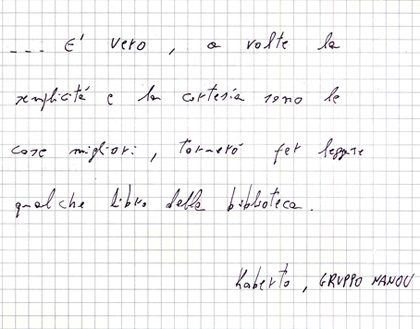 ... E' vero, a volte la
semplicitá e la cortesia sono le
cose migliori, torneró per leggere
qualche libro della biblioteca.
Roberto, GRUPPO NANOU